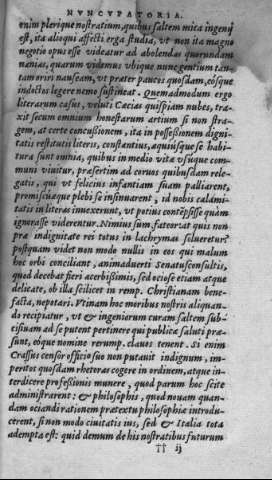 NVNCVPATORIA.
enim plerique nostratium, quibus saltem mica ingenij
est, ita alioqui affecti erga studia, vt non ita magno
negotio opus esse videatur ad abolendas quorundam
nænias, quarum videmus vbique nunc gentium tan-
tam oriri nauseam, vt præter paucos quosdam, eósque
indoctos legere nemo sustineat. Quemadmodum ergo
literarum casus, veluti Cæcias quispiam nubes, tra-
xit secum omnium honestarum artium si non stra-
gem, at certe concussionem, ita in possessionem digni-
tatis restitutis literis, constantius, æquiúsque se habi-
tura sunt omnia, quibus in medio vita vsúque com-
munis viuitur, præsertim ad coruos quibusdam rele-
gatis, qui vt felicius infantiam suam palliarent,
promiscuæque plebi se insinuarent, id nobis calami-
tatis in literas inuexerunt, vt potius contépsisse quàm
ignorasse viderentur. Nimius sum, fateor: at quis non
præ indignitate rei totus in lachrymas solueretur?
postquam videt non modo nullis in eos qui malum
hoc orbi conciliant, animaduerti Senatusconsultis,
quod decebat fieri acerbissimis, sed ociose etiam atque
delicate, ob illa scilicet in remp. Christianam bene-
facta, nepotari. Vtinam hoc moribus nostris aliquan-
do recipiatur, vt & ingeniorum curam saltem sub-
cisiuam ad se putent pertinere qui publicæ saluti præ-
sunt, eóque nomine rerump. clauos tenent. Si enim
Crassus censor officio suo non putauit indignum, im-
peritos quosdam rhetoras cogere in ordinem, atque in-
terdicere professionis munere, quod parum hoc scite
administrarent: & philosophis, quod nouam quan-
dam ociandi rationem prætextu philosophiæ introdu-
cerent, si non modo ciuitatis ius, sed & Italia tota
adempta est: quid demum de his nostratibus futurum
†† ij